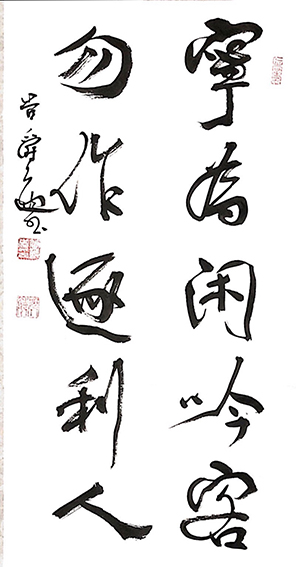 寧為閑吟客
勿作逐利人